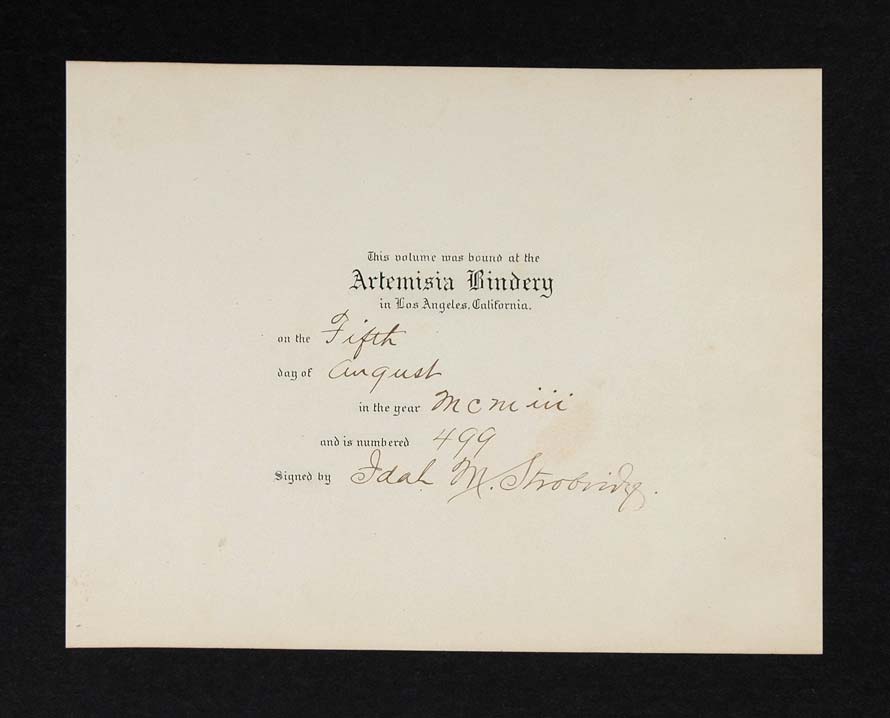 This volume was bound at the
Artemisia Bindery
in Los Angeles, California.
on the Fifth
day of August
in the year Mcmiii
and is numbered 499
Signed by Idah M. Strobridge.